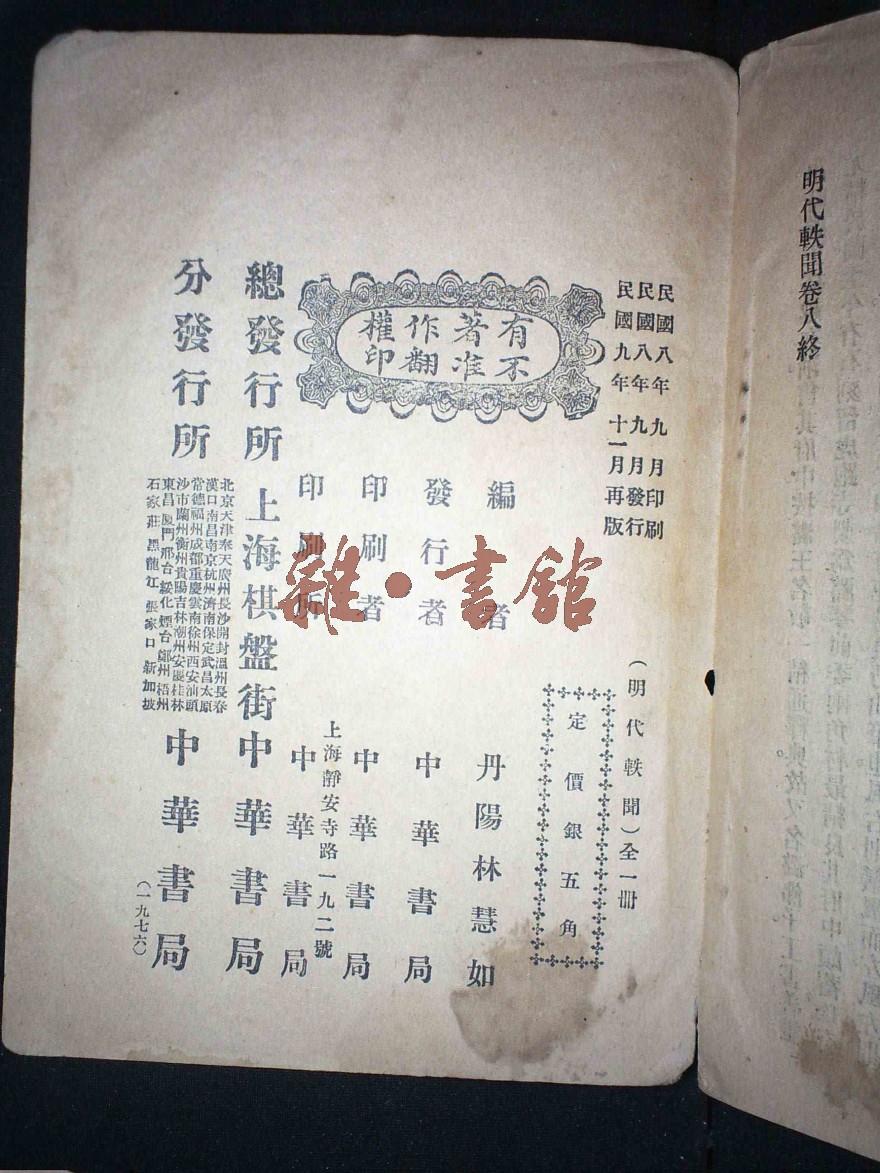 明代軼聞卷八終
民國八年九月印刷
民國八年九月發行
民國九年十一月再版
有不
著准
作翻
權印
(明代軼聞)全一册
定價銀五角
編者 丹陽林慧如
發行者 中華書局
印刷者 中華書局
上海靜安寺路一九二號
印刷所 中華書局
總發行所 上海棋盤街 中華書局
分發行所
北京天津奉天廣州長沙開封溫州長春
漢口南昌南京杭州濟南保定武昌太原
常德福州成都重慶雲南徐州西安汕頭
沙市蘭州衡州貴陽吉林潮州安慶桂林
東昌廈門邢台綏化煙台鄭州梧州
石家莊黑龍江張家口新加坡
中華書局
(一九七六)
雜·書館